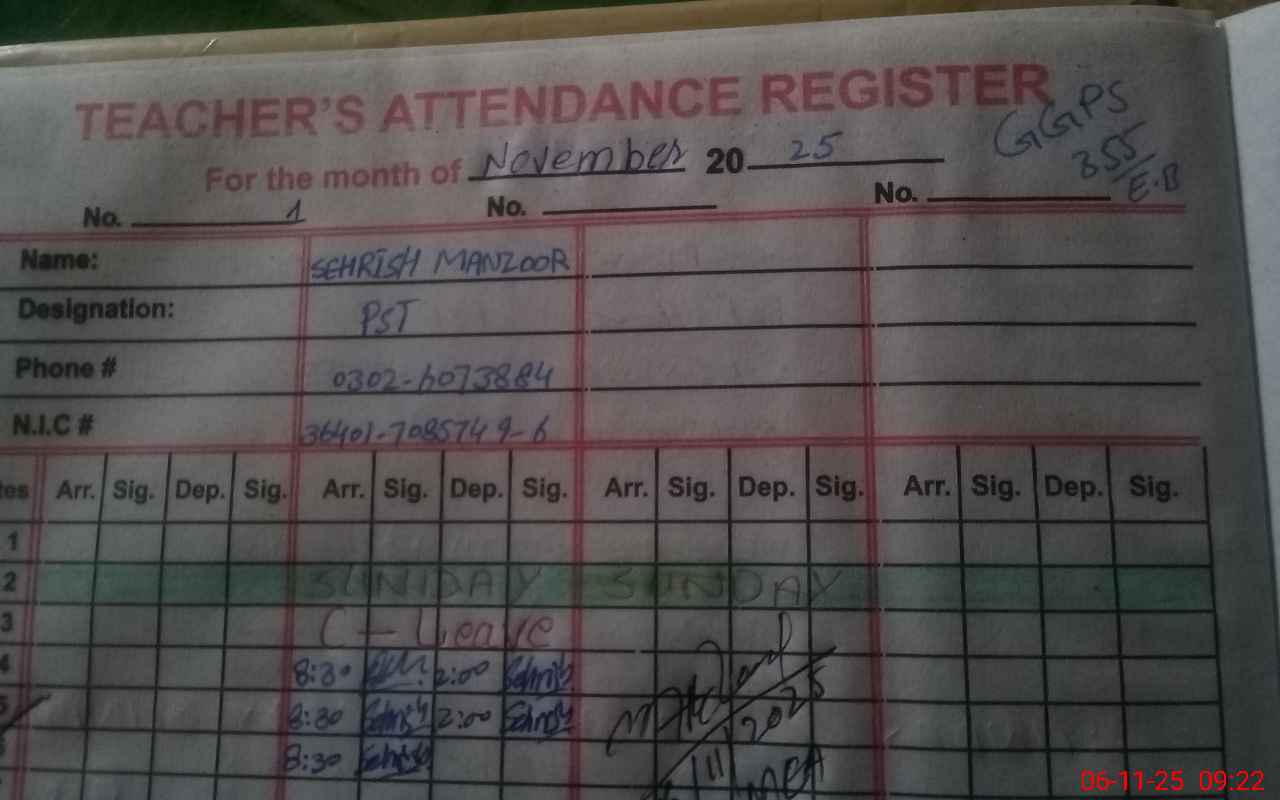 TEACHER'S ATTENDANCE REGISTER
GGPS
355/E.B
For the month of November 20 25
No. 1 No. No.
Name: SEHRISH MANZOOR
Designation: PST
Phone # 0302-6073884
N.I.C # 36401-7085749-6
tes Arr. Sig. Dep. Sig. Arr. Sig. Dep. Sig. Arr. Sig. Dep. Sig. Arr. Sig. Dep. Sig.
1
2 SUNDAY SUNDAY
3 C - Leave
4 8:30 2:00 Sehrish
5 8:30 Sehrish 2:00 Sehrish
8:30 Sehrish
11/2025
MEA
06-11-25 09:22